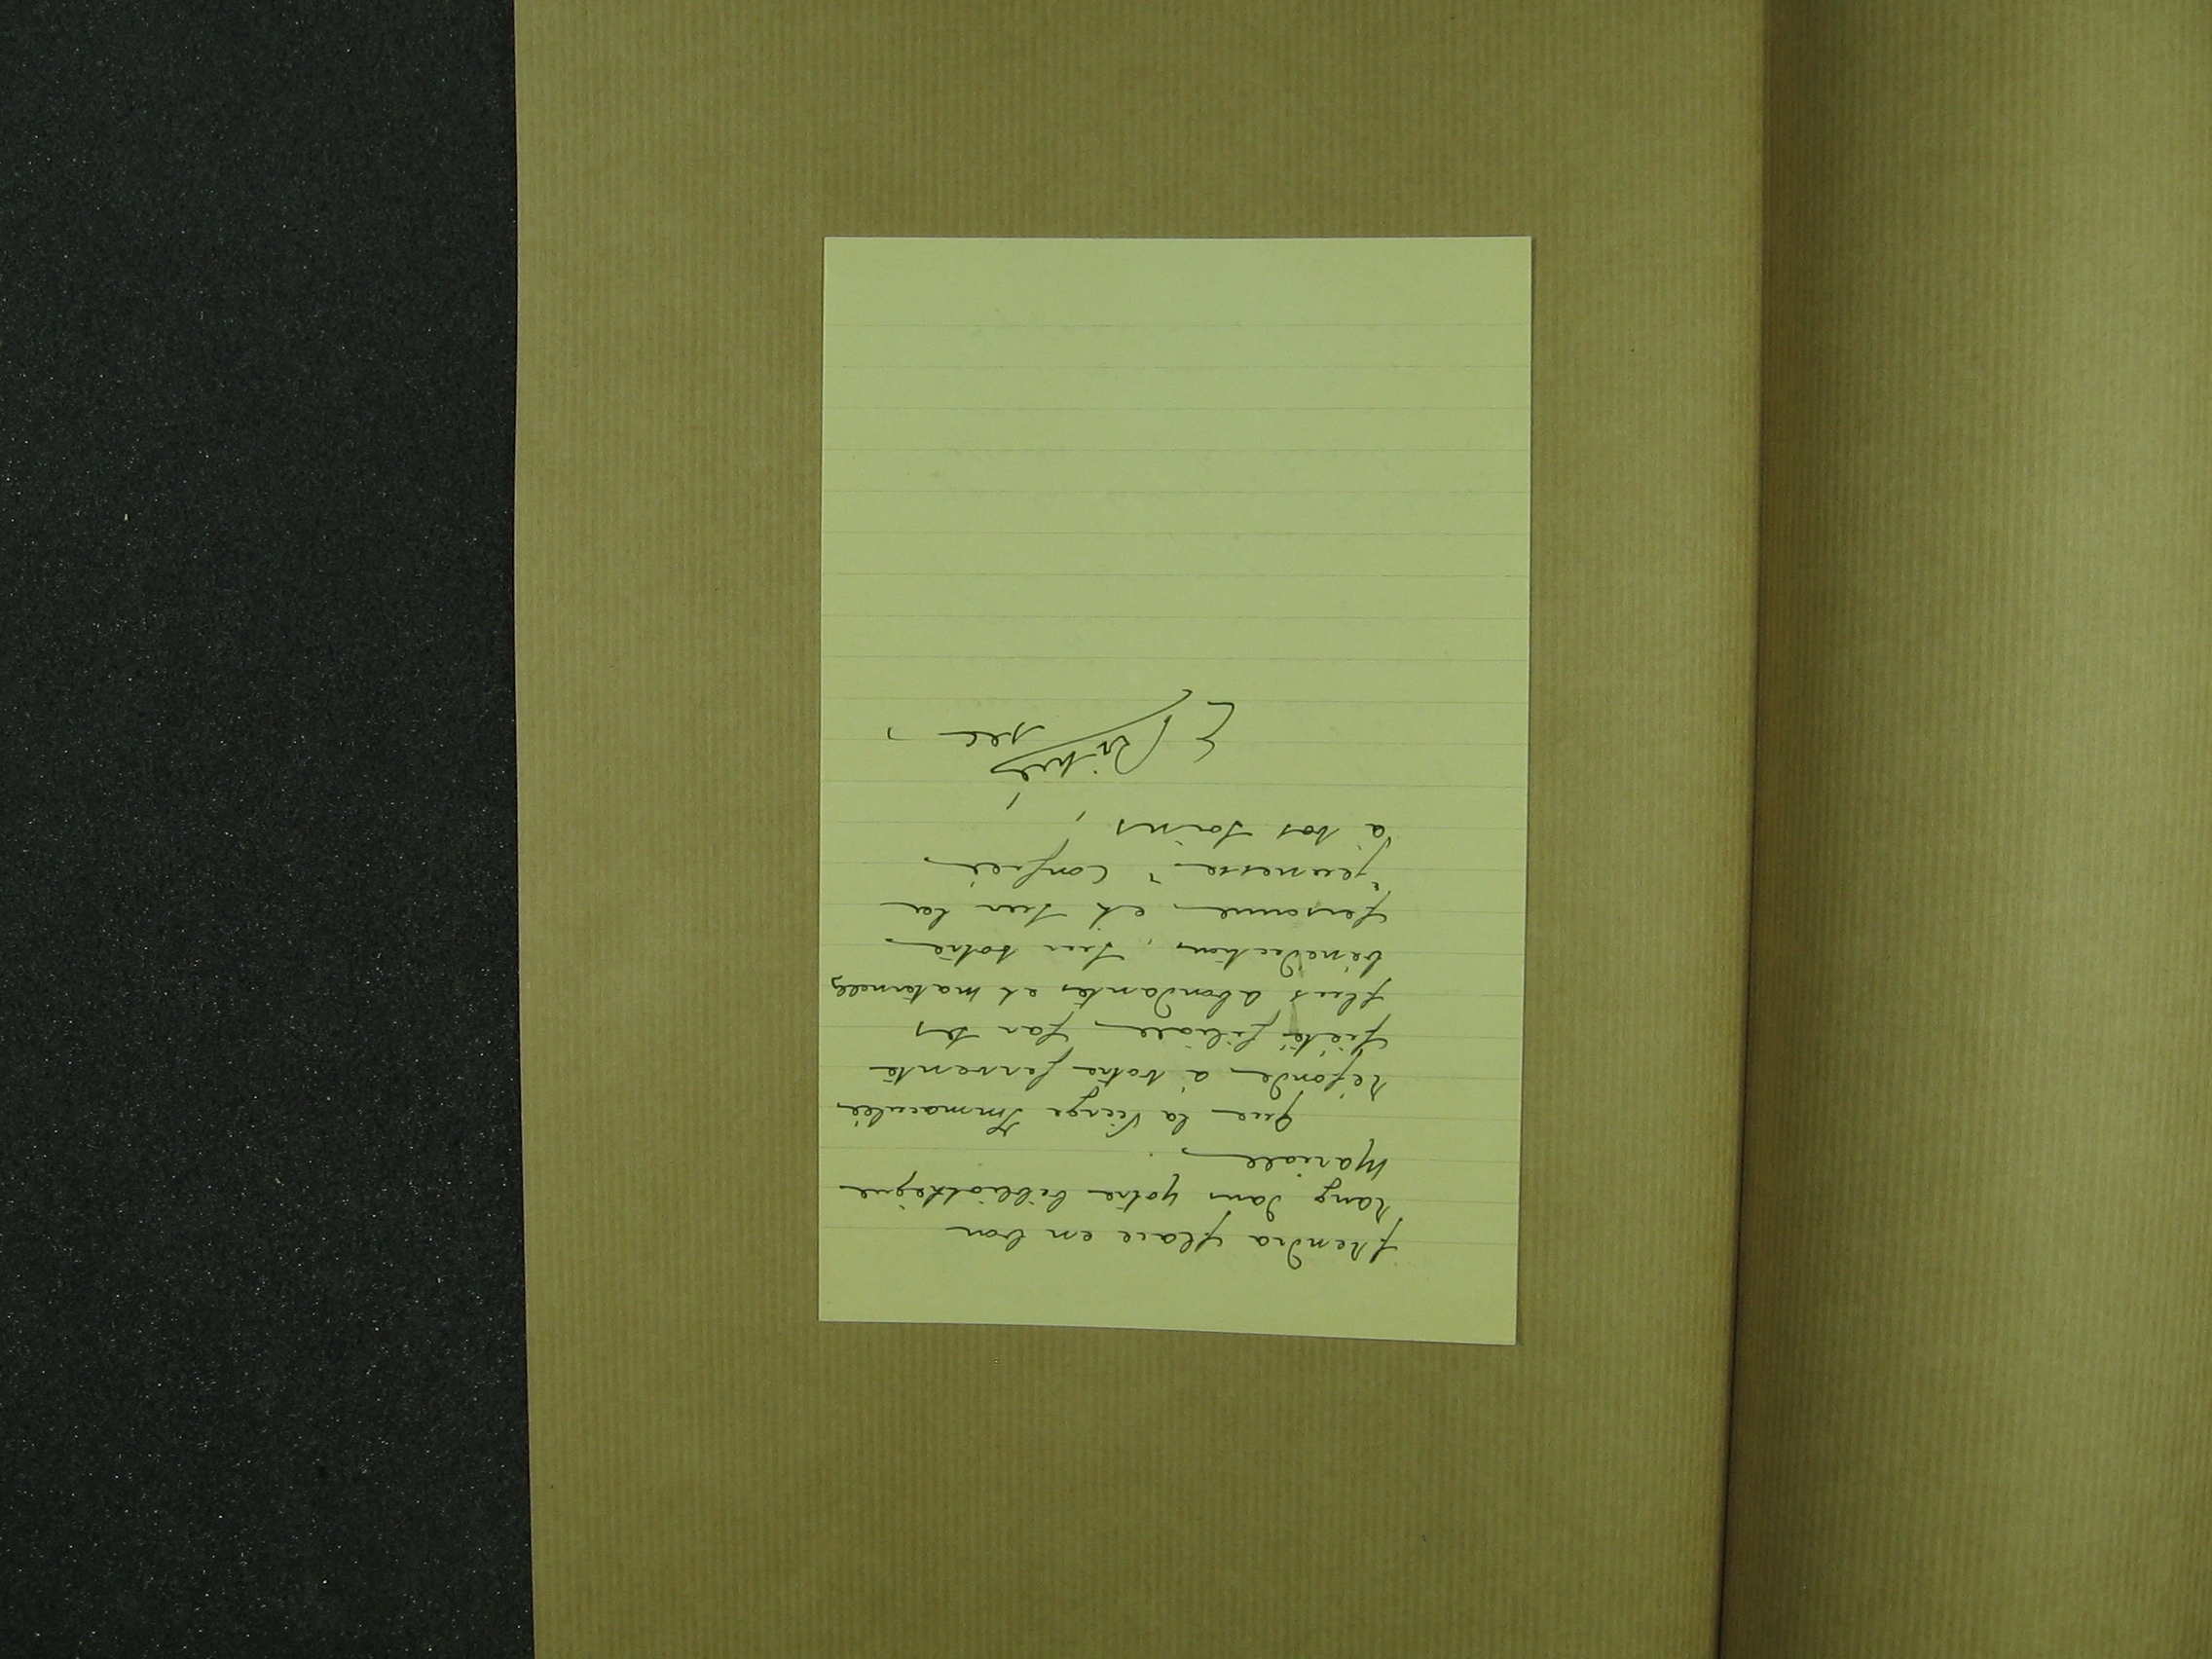 prendra place en bon
rang dans votre bibliothèque
Mariale.
Que la Vierge Immaculée
réponde à votre fervente
piété filiale par ses
plus abondantes et maternelles
bénédictions, sur votre
personne et sur la
"jeunesse" confiée
à vos soins,
sec.